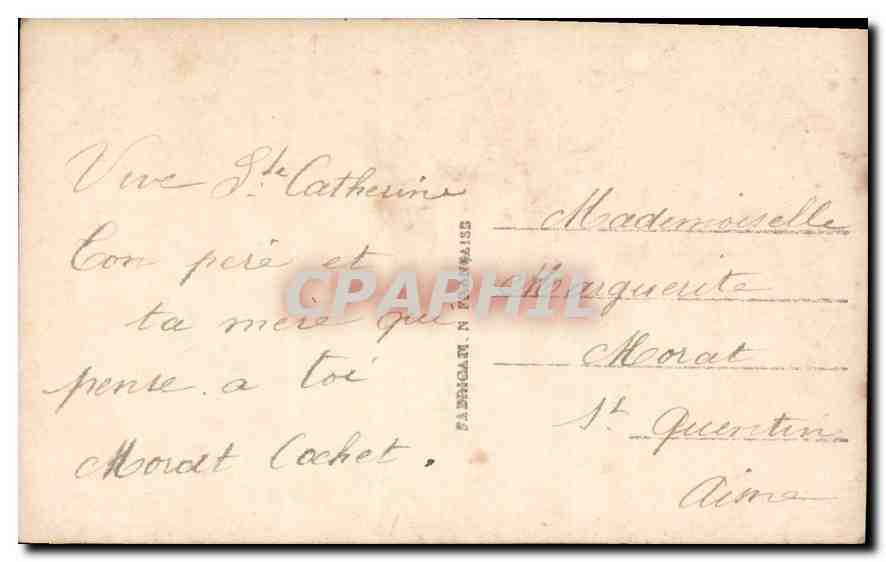 Vive Ste Catherine
Ton peré et
ta meré qui
pense a toi
Morat Cochet.
FABRICATION FRANÇAISE
Mademoiselle
Marguerite
Morat
St Quentin
Aisne
CPAPHIL